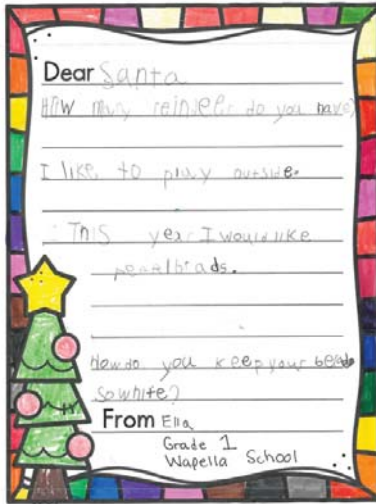 Dear Santa
How many reinseer do you have?
I like to play outside.
This year I would like
pearlbrads.
How do you keep your beard
so white?
From Ella
Grade 1
Wapella School